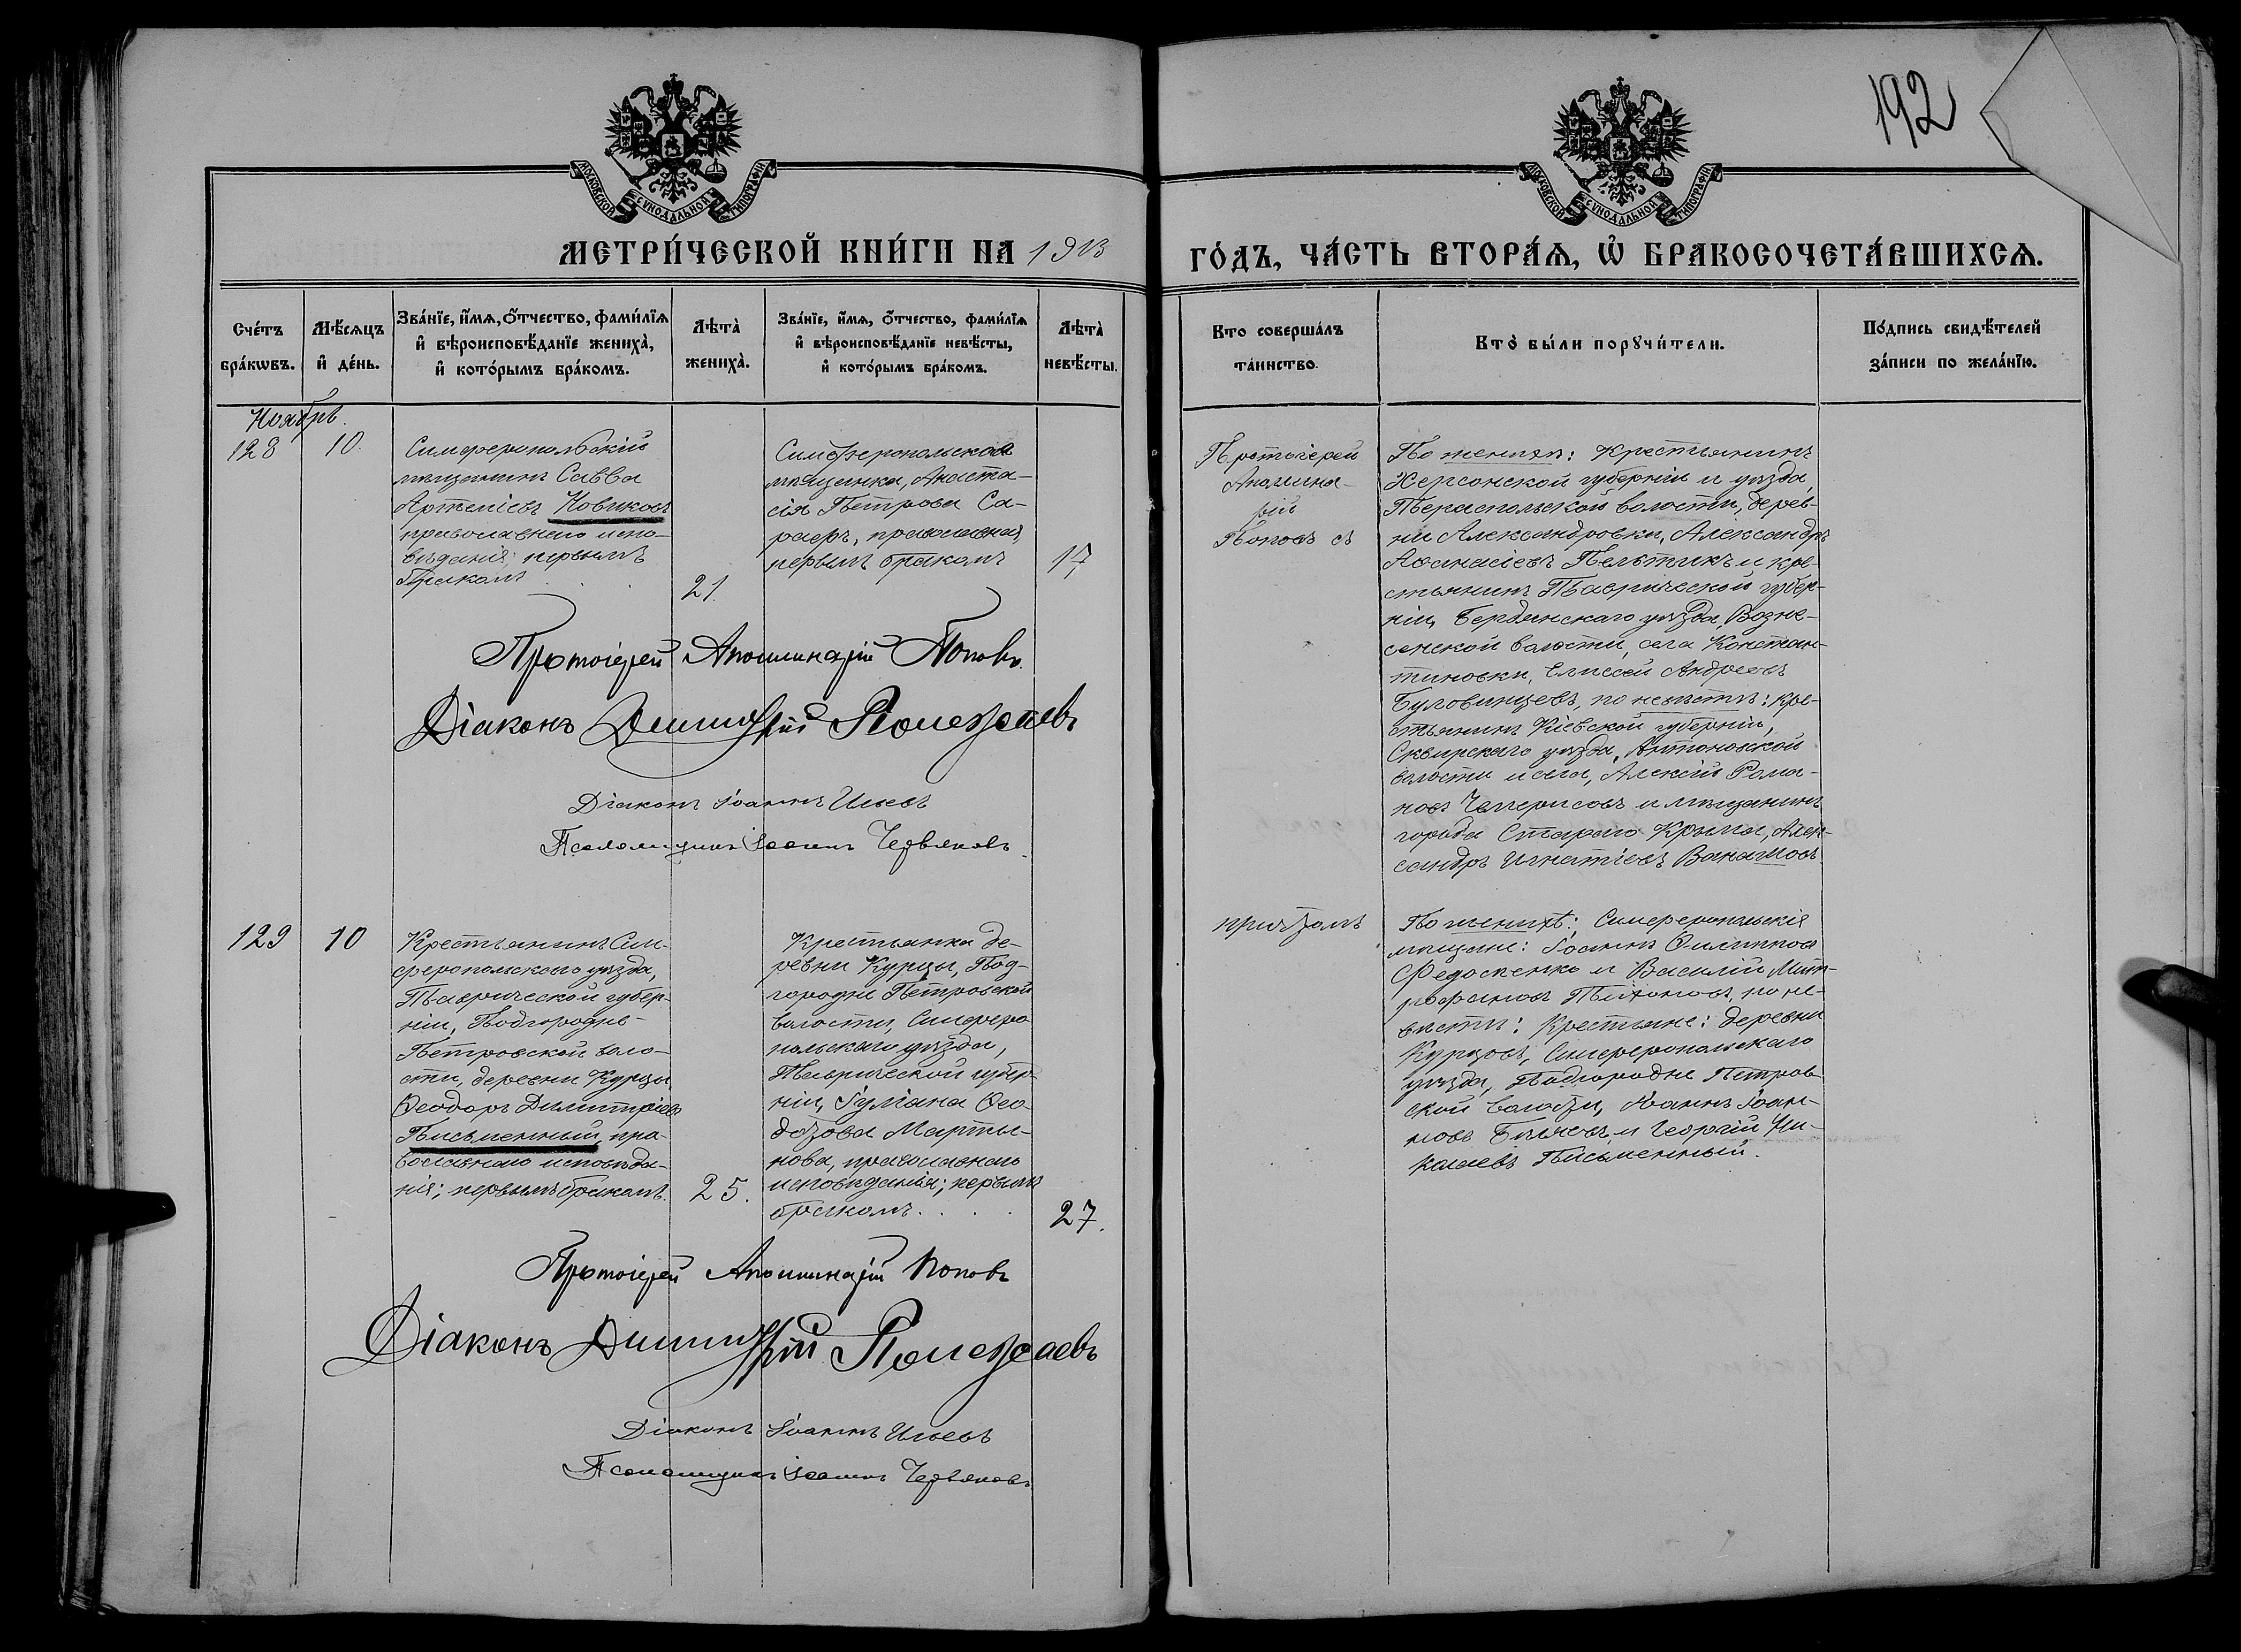 192
МОСКОВСКОЙ СѴНОДАЛЬНОЙ ТИПОГРАФІИ
МОСКОВСКОЙ СѴНОДАЛЬНОЙ ТИПОГРАФІИ
МЕТРИ́ЧЕСКОЙ КНИ́ГИ НА 1913
ГО́ДЪ, ЧА́СТЬ ВТОРА́Ѧ, Ѡ҆ БРАКОСОЧЕТА́ВШИХСѦ.
Сче́тъ
бра́кѡвъ.
Мѣ́сѧцъ
и҆ де́нь.
Зва́нїе, и҆́мѧ, ѻ҆́тчество, фами́лїѧ
и҆ вѣроисповѣ́данїе жениха̀,
и҆ кото́рымъ бра́комъ.
Лѣта̀
жениха̀.
Зва́нїе, и҆́мѧ, ѻ҆́тчество, фами́лїѧ
и҆ вѣроисповѣ́данїе невѣ́сты,
и҆ кото́рымъ бра́комъ.
Лѣта̀
невѣ́сты.
Кто соверша́лъ
та́инство.
Кто̀ бы́ли порꙋчи́тели.
По́дпись свидѣ́телей
за́писи по жела́нїю.
Ноябрь.
128
10.
Симферопольскій
мѣщанинъ Савва
Артеміевъ Новиковъ
православнаго испо-
вѣданія; первымъ
бракомъ
21.
Симферопольская
мѣщанка, Анаста-
сія Петрова Са-
раеръ, православная
первымъ бракомъ
17,
Протоіерей
Аполлина-
рій
Поповъ съ
По женихѣ: Крестьянинъ
Херсонской губерніи и уѣзда,
Тераспольской волости, дерев-
ни Александровки, Александръ
Аѳанасіевъ Пельтикъ и кре-
стьянинъ Таврической губер-
ніи, Бердянскаго уѣзда, Возне-
сенской волости, села Констан-
тиновки, Елисей Андреевъ
Буловинцевъ, по невѣстѣ: кре-
стьянинъ Кіевской губерніи,
Сквирскаго уѣзда, Антоновской
волости и села, Алексій Рома-
новъ Чемерисовъ и мѣщанинъ
города Стараго Крыма, Алек-
сандръ Игнатіевъ
Протоіерей Аполлинарій Поповъ.
Діаконъ Димитрій Полежаевъ
Діаконъ Іоаннъ Ильевъ
Псаломщикъ Іоаннъ Червяковъ.
129
10
Крестьянинъ Сим-
феропольскаго уѣзда,
Таврической губер-
ніи, Подгородне-
Петровской воло-
сти, деревни Курцы
Ѳеодоръ Димитріевъ
Письменный, пра-
вославнаго исповѣда-
нія; первымъ бракомъ.
25.
Крестьянка де-
ревни Курцы, Под-
городне Петровской
волости, Симферо
польскаго уѣзда,
Таврической губер-
ніи, Іуліана Ѳео-
дорова Марты-
нова, православнаго
исповѣданія; первымъ
бракомъ. . .
27.
причтомъ
По женихѣ: Симферопольскія
мѣщане: Іоаннъ Филипповъ
Федосенко и Василій Мит-
рофановъ Тихоновъ, по не-
вѣстѣ: Крестьяне: деревни
Курцовъ, Симферопольскаго
уѣзда, Подгородне Петров-
ской волости, Іоаннъ Іоан-
новъ Бѣляевъ и Георгій Ни-
колаевъ Письменный.
Протоіерей Аполлинарій Поповъ
Діаконъ Димитрій Полежаевъ
Діаконъ Іоаннъ Ильевъ
Псаломщикъ Іоаннъ Червяковъ.